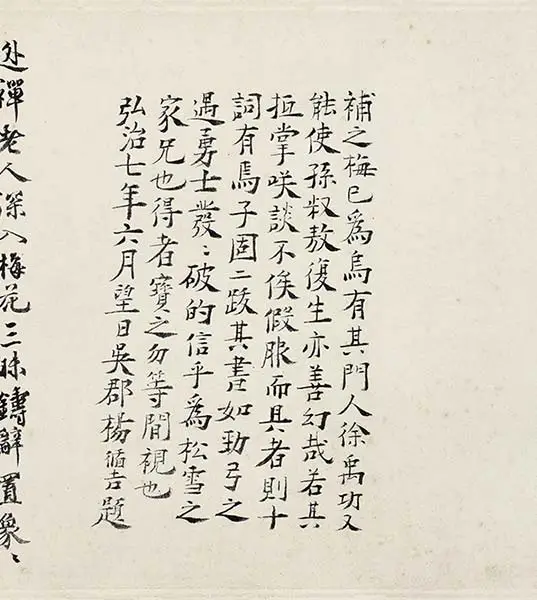 補之梅已為烏有其門人徐禹功又
能使孫叔敖復生亦善幻哉若其
抵掌咲談不俟假服而具者則十
詞有焉子固二跋其書如勁弓之
遇勇士發〻破的信乎為松雪之
家兄也得者寶之勿等閒視也
弘治七年六月望日吳郡楊循吉題
逃禪老人深入梅花三昧鑄辭置象〻